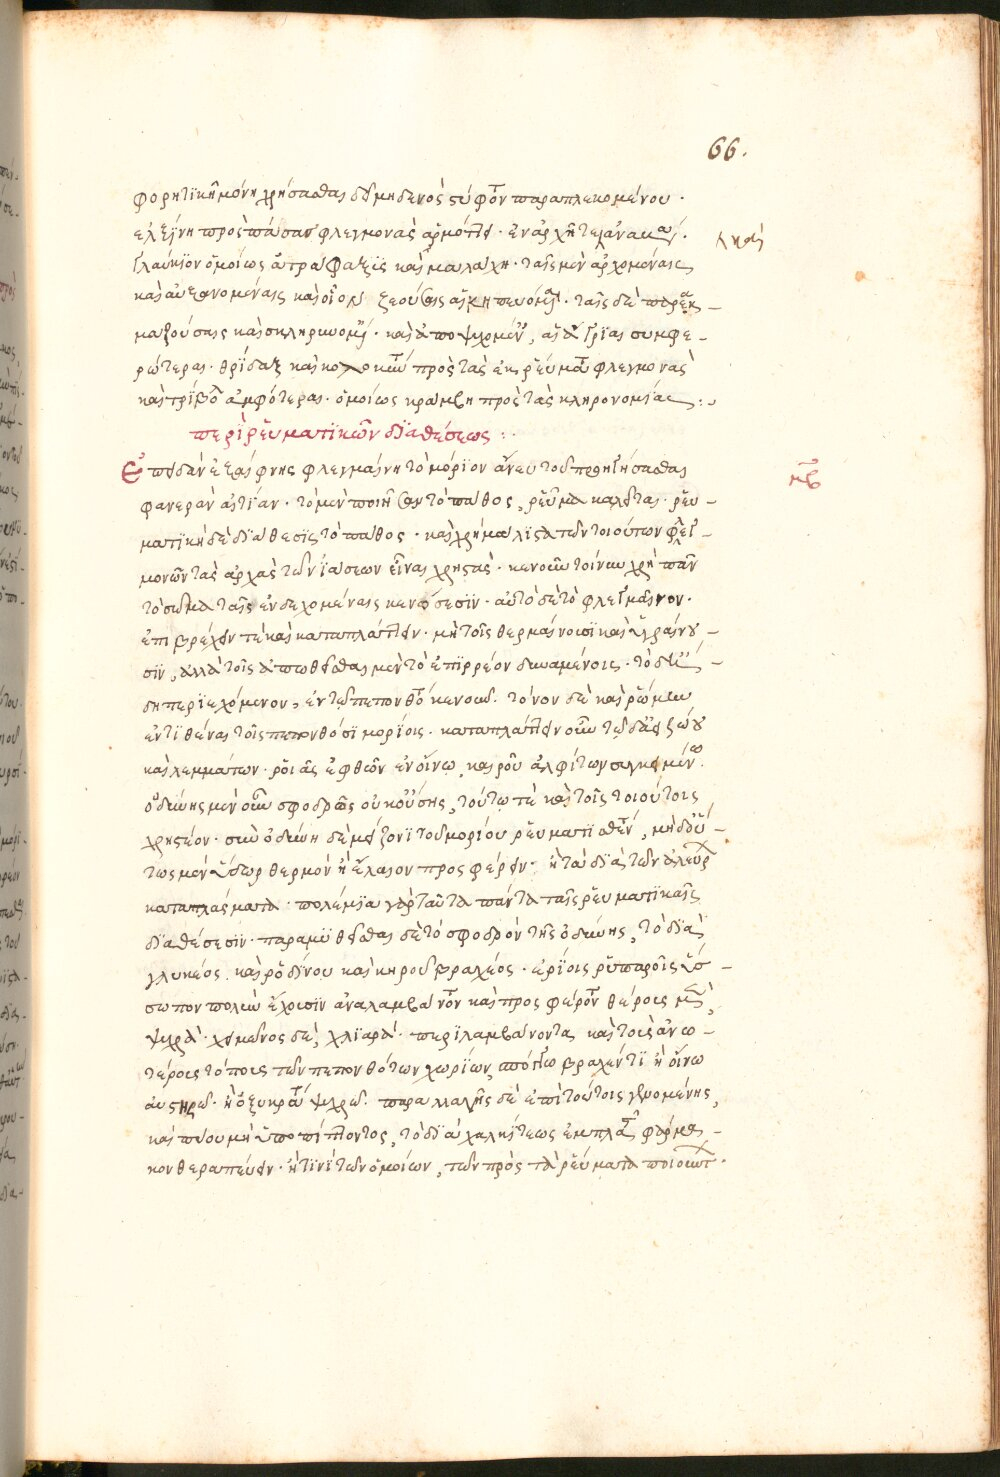 66.
φορητικῆ μόνη χρήσασθαι δεῖ μηδενὸς στύφοντος παραπλεκομένου·
ἐλξίνη πρὸς πάσας φλεγμονὰς ἁρμόττει· ἐν ἀρχῇ τε καὶ ἀνα
γλαύκιον ὁμοίως ἀτράφαξις καὶ μαλάχη· ταῖς μὲν ἀρχομέναις
καὶ αὐξανομέναις καὶ οἷον ζεούσαις ἡ κηπευομένη· ταῖς δὲ παρακ-
μαζούσαις καὶ σκληρυνομέναις· καὶ ἀποψυχομέναις, αἱ ἄγριαι συμφε-
ρώτεραι· θρίδαξ καὶ κολοκύντη πρὸς τὰς ἐκ ῥεύματος φλεγμονὰς
καὶ τρίβολοι ἀμφότεραι· ὁμοίως κράμβη πρὸς τὰς κληρονομίας:
περὶ ῥευματικῶν διαθέσεως:
Ἐπειδὰν ἐξαίφνης φλεγμαίνῃ τὸ μόριον ἄνευ τοῦ προηγήσασθαι
φανερὰν αἰτίαν· τὸ μὲν ποιῆσαν τὸ πάθος, ῥεῦμα καλεῖται· ῥευ-
ματικὴ δὲ διάθεσις τὸ πάθος· καὶ χρὴ μάλιστα τῶν τοιούτων φλεγ-
μονῶν τὰς ἀρχὰς τῶν ἰάσεων εἶναι χρηστάς· κενοῦν τοίνυν χρὴ πᾶν
τὸ σῶμα ταῖς ἐνδεχομέναις κενώσεσιν· αὐτὸ δὲ τὸ φλεγμαῖνον·
ἐπιβρέχειν τὲ καὶ καταπλάττειν· μὴ τοῖς θερμαίνουσι καὶ ὑγραίνου-
σιν, ἀλλὰ τοῖς ἀπωθεῖσθαι μὲν τὸ ἐπιρρέον δυναμένοις· τὸ δὲ ἤ-
δη περιεχόμενον, ἐν τῷ πεπονθότι κενοῦν· τόνον δὲ καὶ ῥώμην
ἐντιθέναι τοῖς πεπονθόσι μορίοις· καταπλάττειν οὖν τῷ δι' ἀειζώου
καὶ λεμμάτων· ῥοιᾶς ἑφθῶν ἐν οἴνω, καὶ ροῦ ἀλφίτων συγκειμένω·
ὀδύνης μὲν οὖν σφοδρᾶς οὐκ οὔσης, τούτω τὲ καὶ τοῖς τοιούτοις
χρηστέον· σὺν ὀδύνη δὲ μείζονι τοῦ μορίου ῥευματισθέντος, μηδ' οὕ-
τως μὲν ὕδωρ θερμὸν ἢ ἔλαιον προσφέρειν· ἢ τὰ διὰ τῶν ἀλεύρων
καταπλάσματα· πολέμια γὰρ ταῦτα πάντα ταῖς ῥευματικαῖς
διαθέσεσιν· παραμυθεῖσθαι δὲ τὸ σφοδρὸν τῆς ὀδύνης, τὸ διὰ
γλυκέος, καὶ ῥοδίνου καὶ κηροῦ βραχέος· ἐρίοις ῥυπαροῖς ὕσ-
σωπον πολὺν ἔχουσιν ἀναλαμβάνοντα καὶ προσφέροντα θέρους μὲν,
ψυχρά· χειμῶνος δὲ, χλιαρά· περιλαμβάνοντα καὶ τοὺς ἀνω-
τέρους τόπους τῶν πεπονθότων χωρίων, σπόγγω βραχέντι ἢ οἴνω
αὐστηρῶ· ἢ ὀξυκράτω ψυχρῶ· παραλλαγῆς δὲ ἐπὶ τούτοις γινομένης,
καὶ πύου μὴ ὑποπίπτοντος, τὸ διὰ χαλκίτεως ἐμπλαστὸν φάρμα-
κον θεραπεύειν· ἤ τινι τῶν ὁμοίων, τῶν πρὸς τὰ ῥεύματα ποιούντων·
μβ